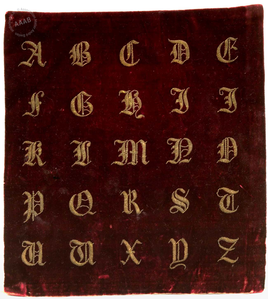 A B C D E
F G H I J
K L M N O
P Q R S T
U W X Y Z